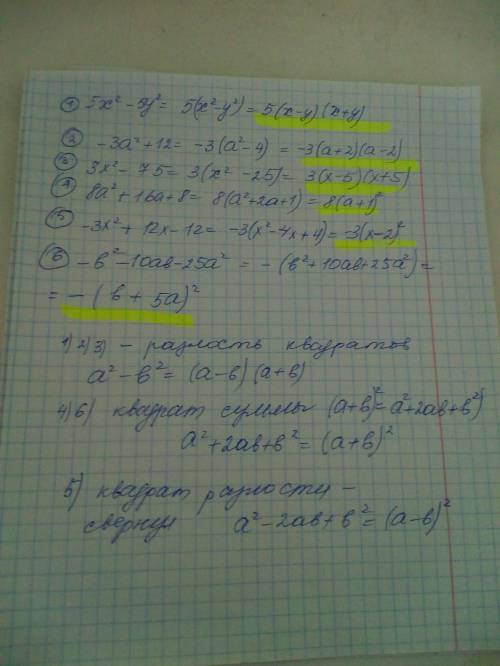 ① 5x² - 5y² = 5(x²-y²) = 5(x-y)(x+y)
② -3a²+12 = -3(a²-4) = -3(a+2)(a-2)
③ 3x² - 75 = 3(x² - 25) = 3(x-5)(x+5)
④ 8a²+16a+8 = 8(a²+2a+1) = 8(a+1)²
⑤ -3x² + 12x-12 = -3(x²-4x+4) = -3(x-2)²
⑥ -в²-10ав-25а² = -(в²+10ав+25а²) =
= -(в + 5а)²
1) 2) 3) - разность квадратов
а² - в² = (а-в)(а+в)
4) 6) квадрат суммы (а+в)²= а²+2ав+в²)
а²+2ав+в² = (а+в)²
5) квадрат разности -
сверни а²-2ав+в² = (а-в)²